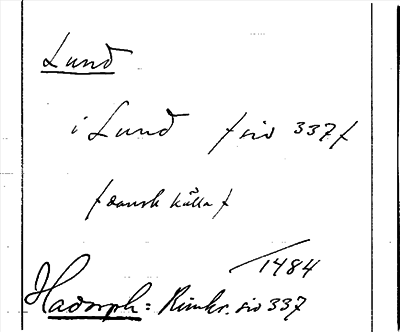 Lund
i Lund / sid 337 /
/ dansk källa /
1484
Hadorph: Rimkr. sid 337